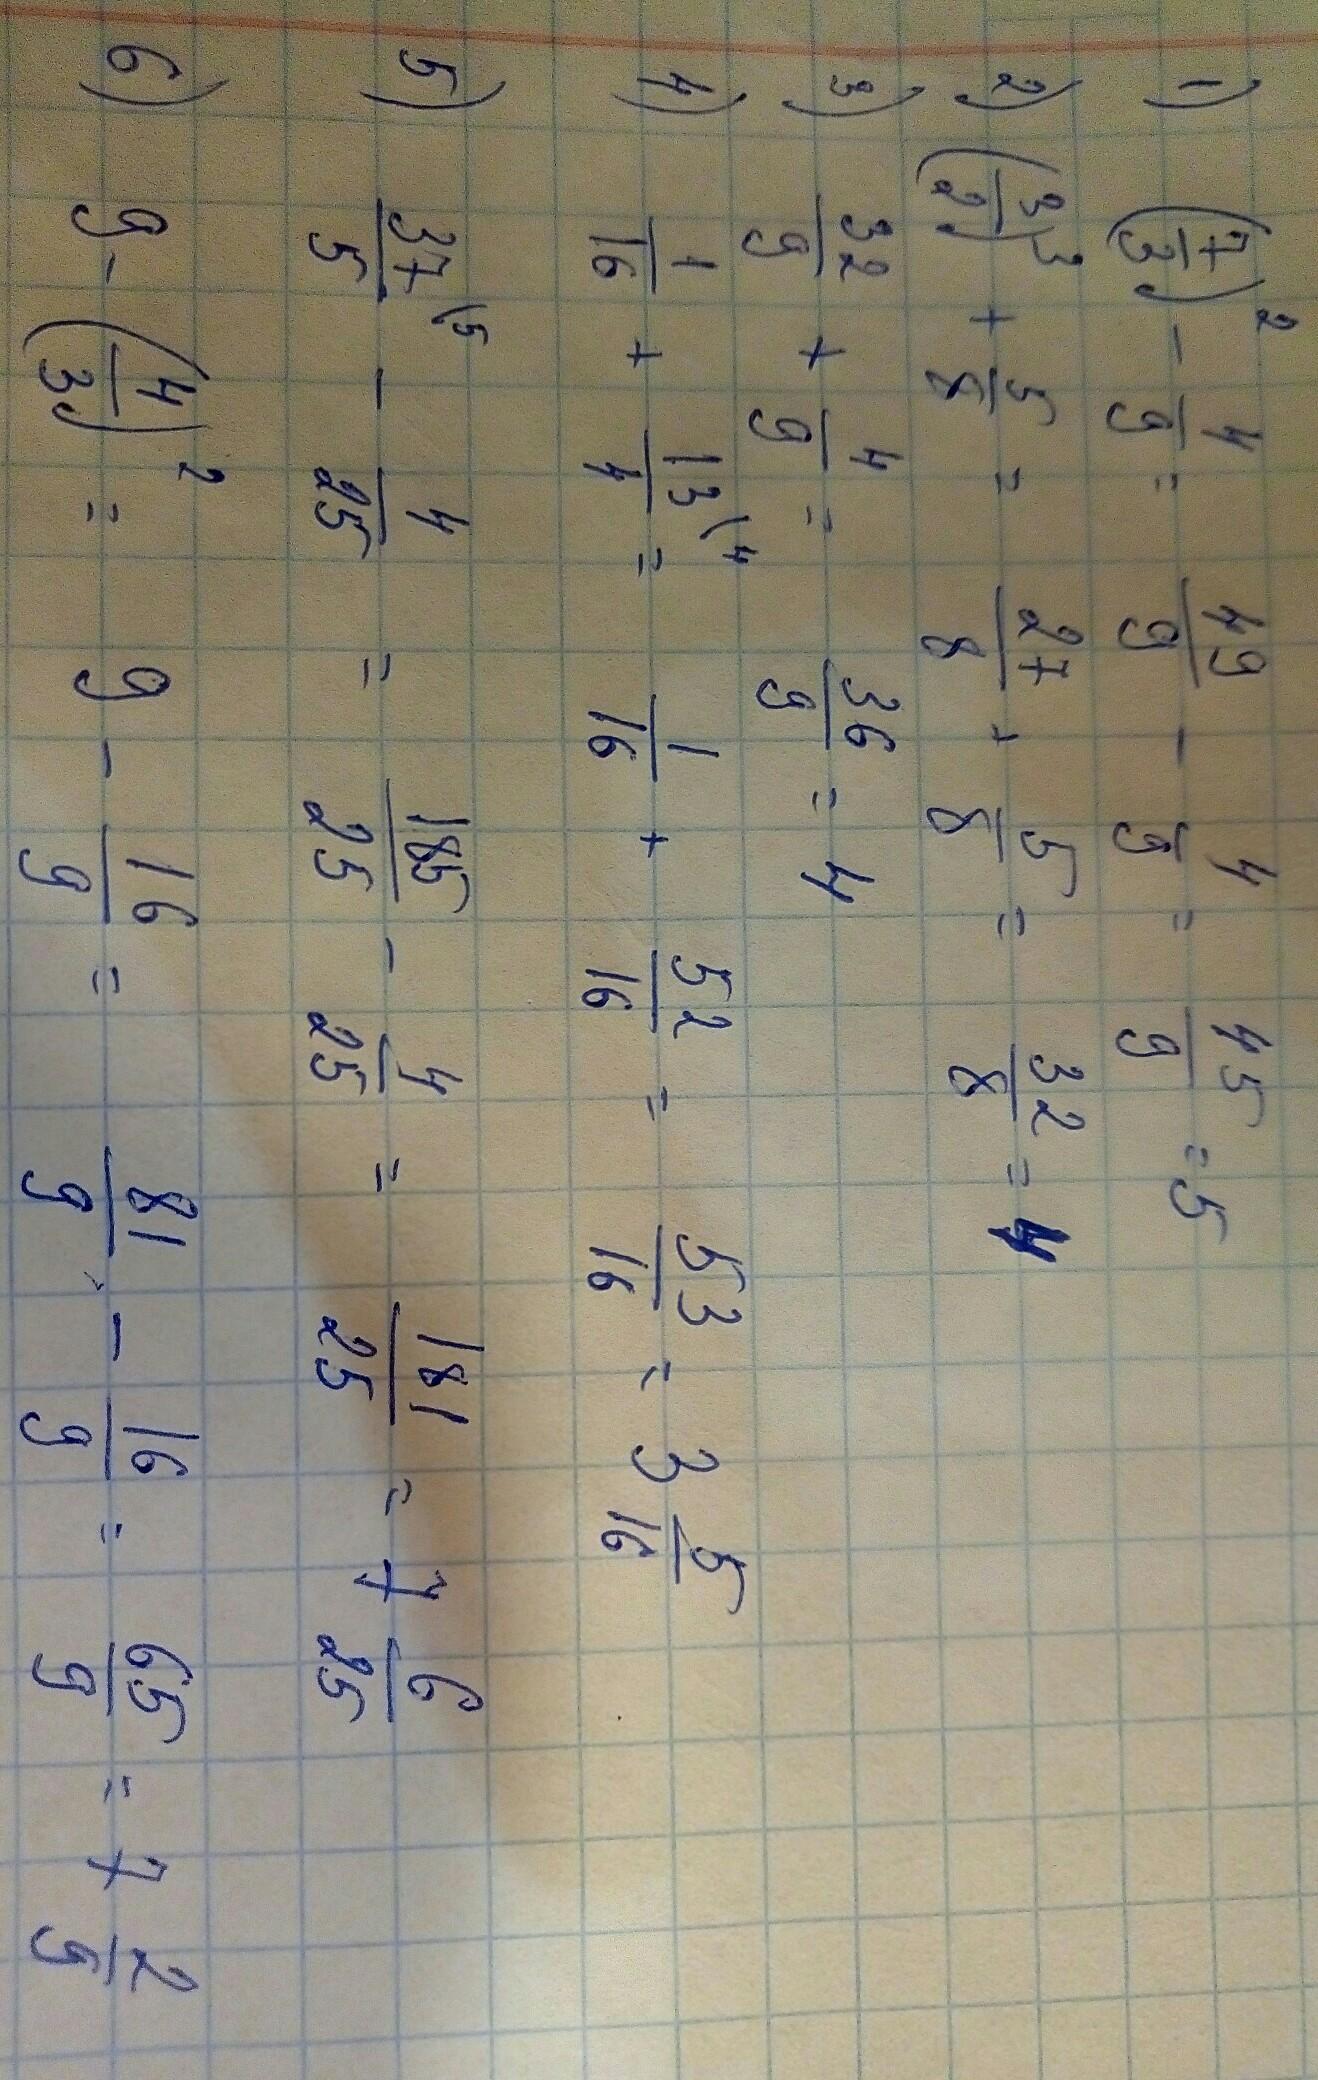 1) (7/3)² - 4/9 = 49/9 - 4/9 = 45/9 = 5
2) (3/2)³ + 5/8 = 27/8 + 5/8 = 32/8 = 4
3) 32/9 + 4/9 = 36/9 = 4
4) 1/16 + 13/4 \4 = 1/16 + 52/16 = 53/16 = 3 5/16
5) 37/5 \5 - 4/25 = 185/25 - 4/25 = 181/25 = 7 6/25
6) 9 - (4/3)² = 9 - 16/9 = 81/9 - 16/9 = 65/9 = 7 2/9